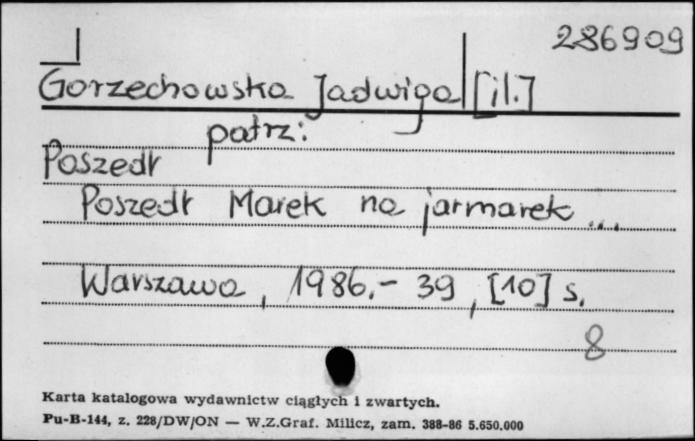 286909
Gorzechowska Jadwiga [il.]
patrz:
Poszedł
Poszedł Marek na jarmarek ...
Warszawa, 1986.- 39, [10] s.
8
Karta katalogowa wydawnictw ciągłych i zwartych.
Pu-B-144, z. 228/DW/ON — W.Z.Graf. Milicz, zam. 388-86 5.650.000